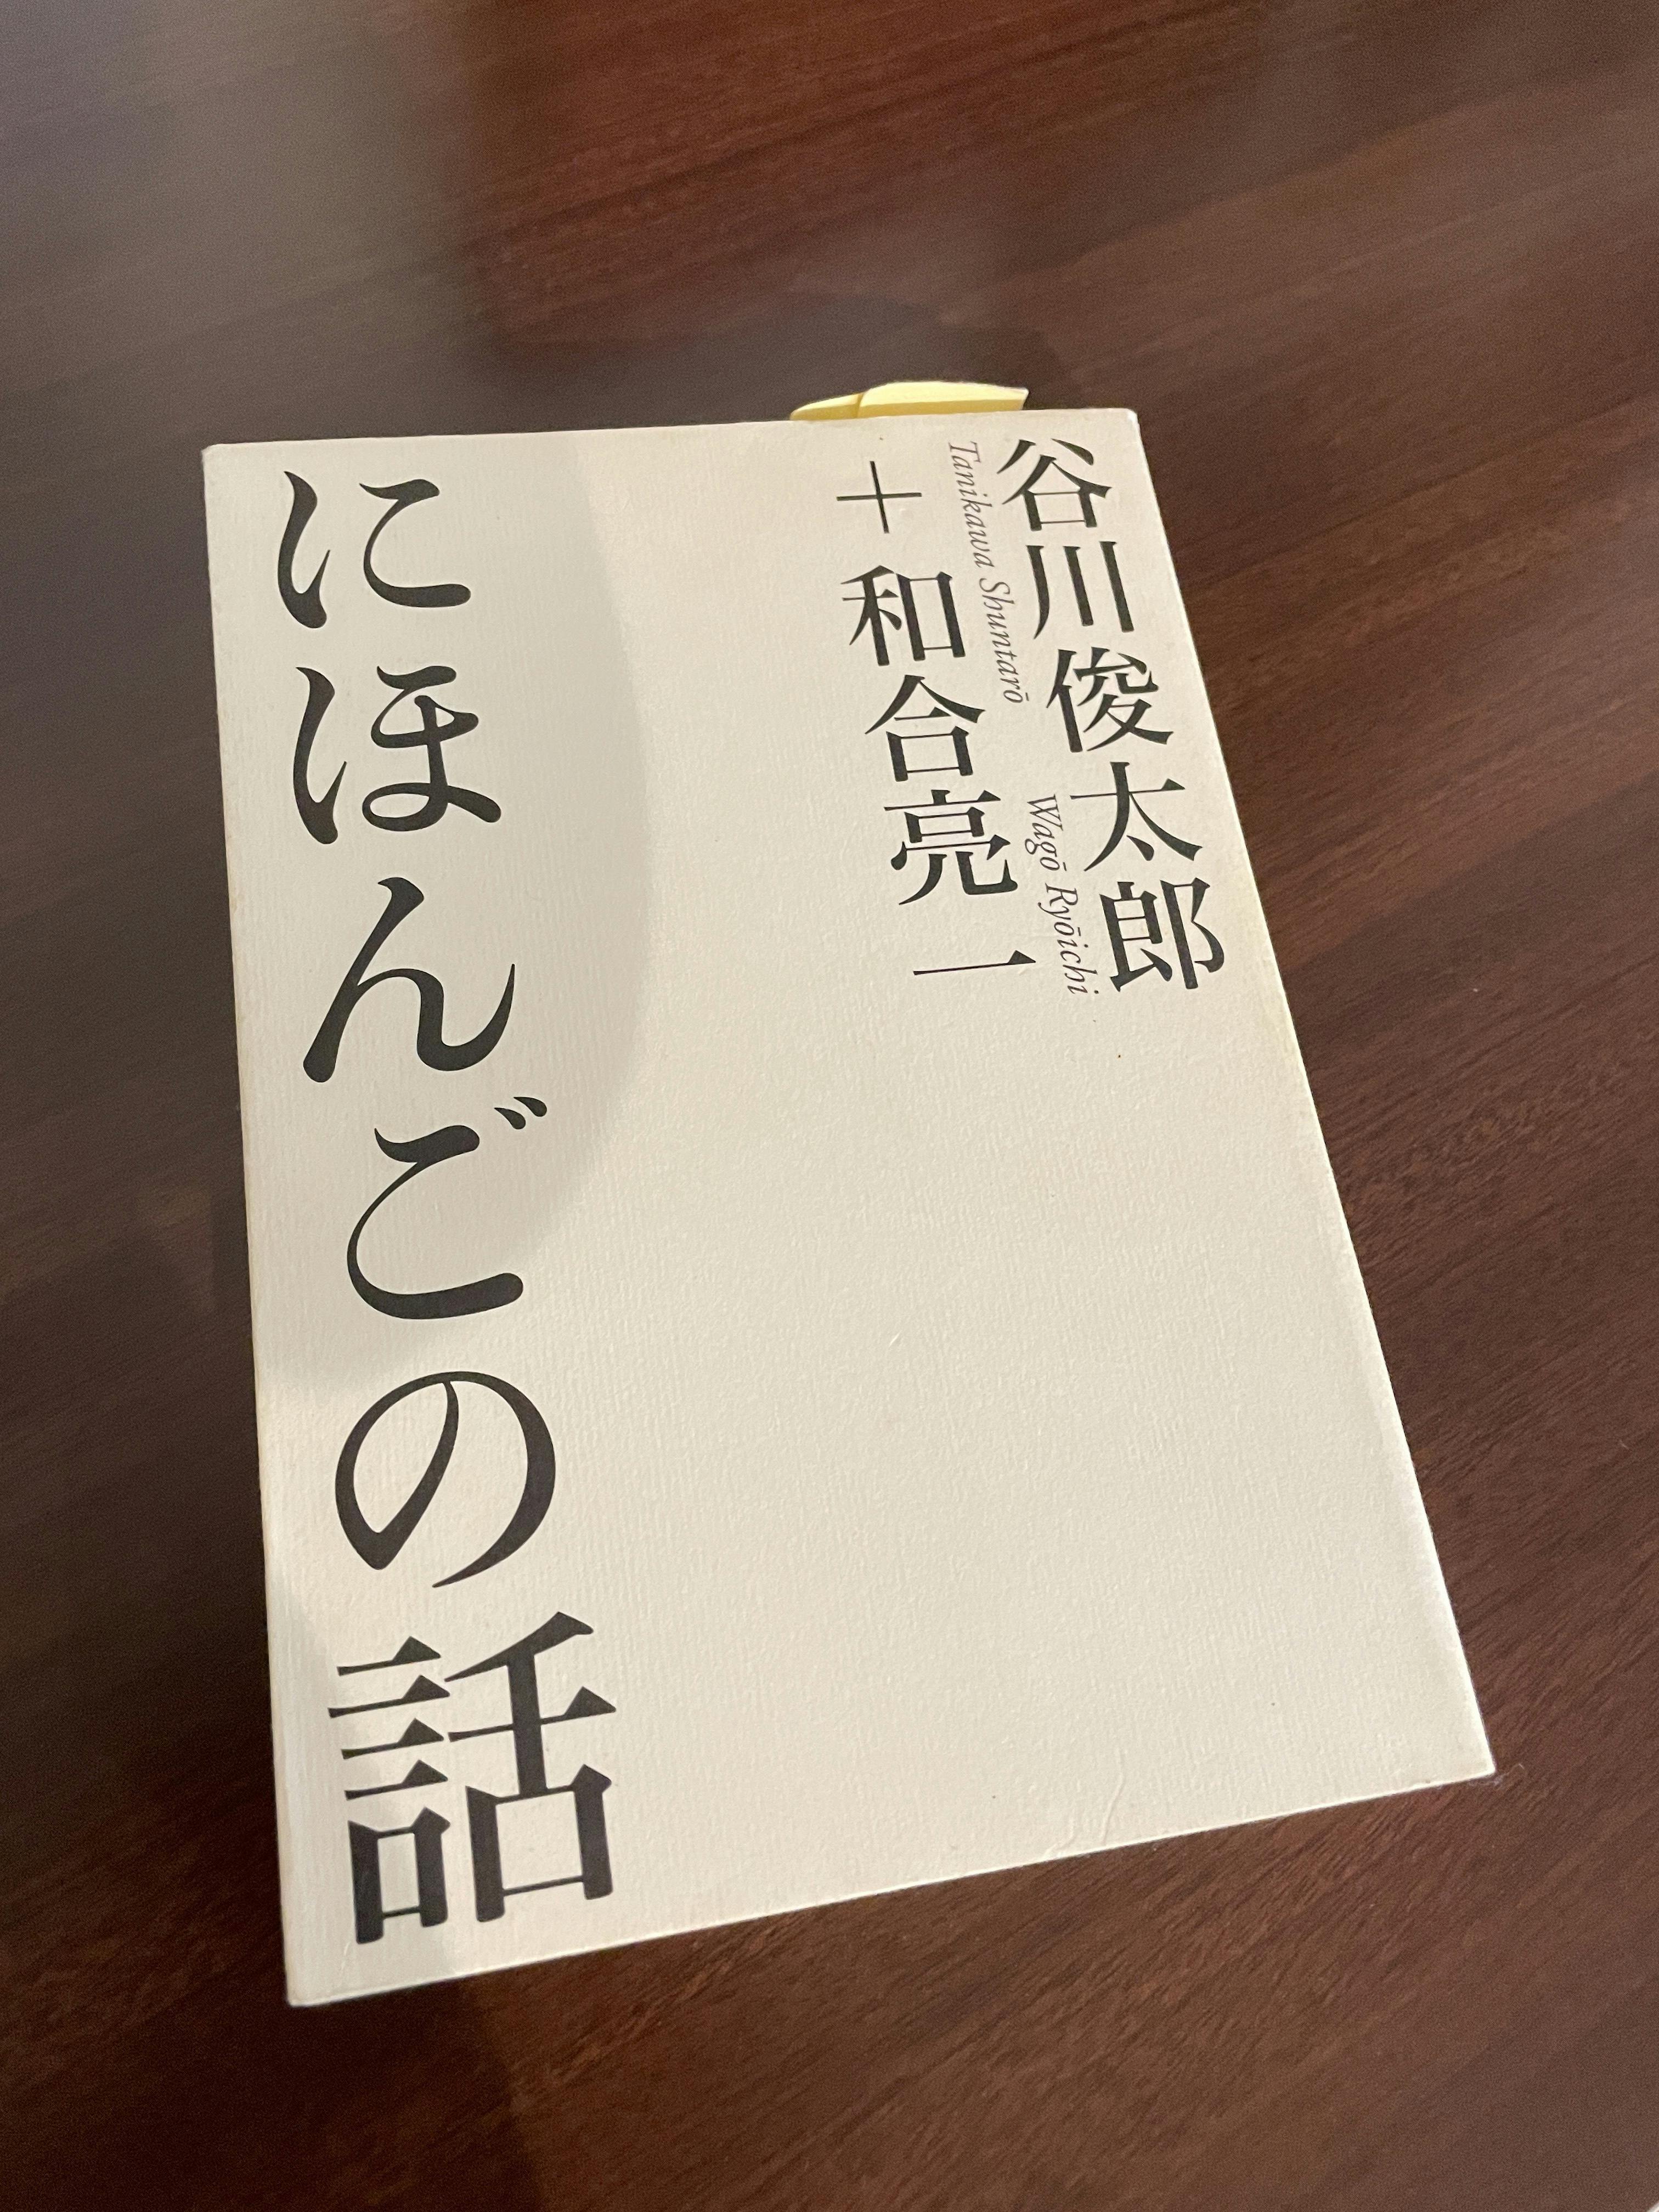 谷川俊太郎
Tanikawa Shuntarō
＋和合亮一
Wagō Ryōichi
にほんごの話